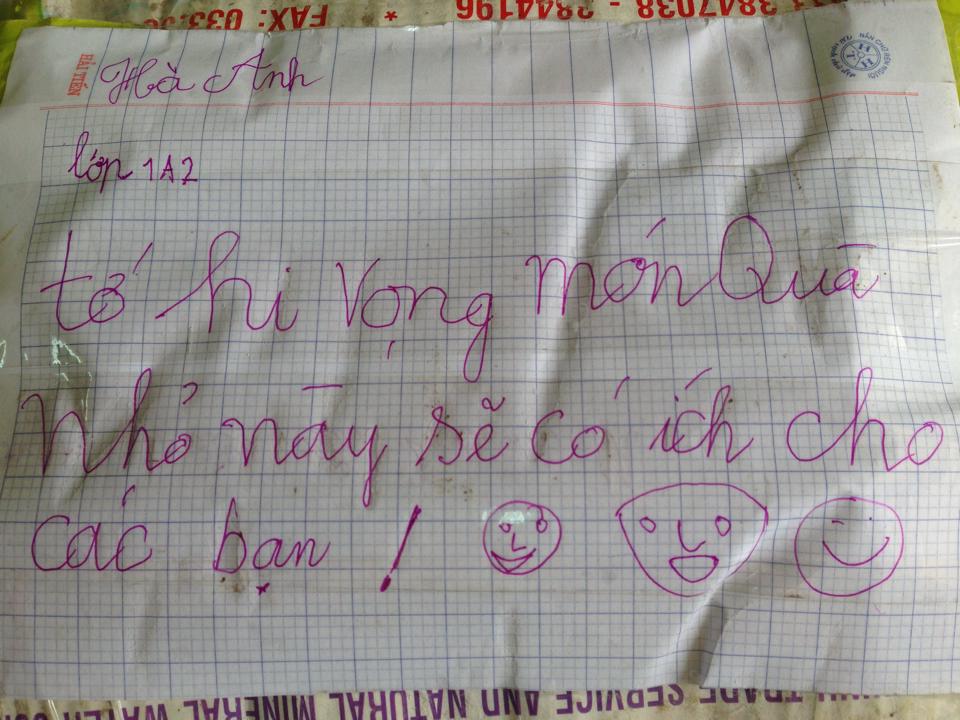 33 3847038 - 3844196 * FAX: 033.
HẢI TIẾN
Hà Anh
lớp 1A2
tớ hi vọng món Quà
Nhỏ này sẽ có ích cho
các bạn !
TRADE SERVICE AND NATURAL MINERAL WATER